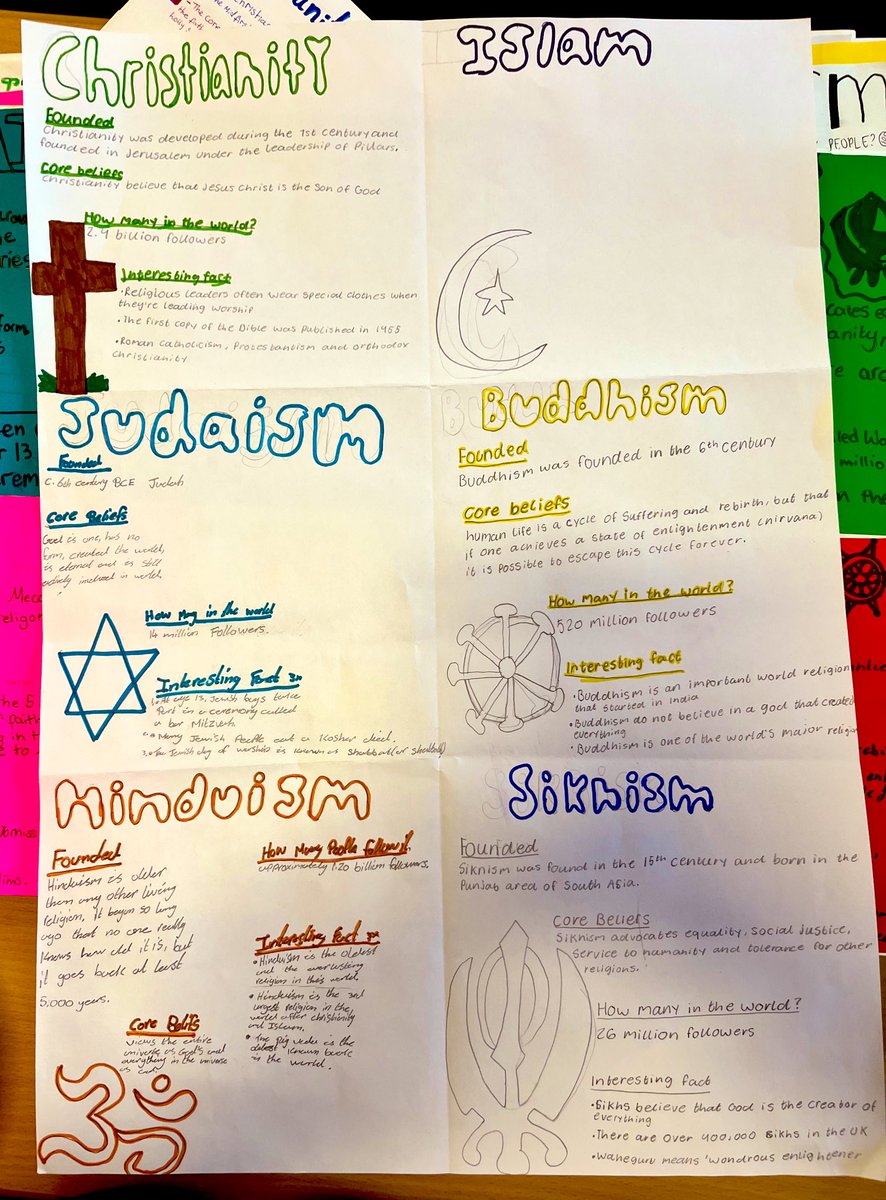 Christianity
Founded
Christianity was developed during the 1st century and
founded in Jerusalem under the leadership of Pillars.
Core beliefs
Christianity believe that Jesus Christ is the Son of God
How many in the world?
2.4 billion followers
Interesting fact
•Religious leaders often wear special clothes when
they're leading worship
•The first copy of the Bible was published in
•Roman Catholicism, Protestantism and orthodox
Christianity
Islam
Judaism
Founded
C. 6th century BCE Judah
Core Beliefs
God is one, has no
form, created the world,
is eternal and is still
involved in world.
How many in the world
14 million Followers.
Interesting Fact
At age 13, Jewish boys
part in a ceremony called
a bar Mitzvah
Many Jewish People eat a Kosher diet.
3. The Jewish day of worship is known as Shabbat (or
Buddhism
Founded
Buddhism was founded in the 6th century
Core beliefs
human life is a cycle of suffering and rebirth, but that
if one achieves a state of enlightenment (nirvana)
it is possible to escape this cycle forever.
How many in the world?
520 million followers
Interesting fact
•Buddhism is an important world religion
that started in India
•Buddhism do not believe in a god that created
everything
•Buddhism is one of the world's major religion
Hinduism
Founded
Hinduism is older
than any other living
religion, it began so long
ago that no one really
knows how old it is, but
it goes back at least
5,000 years.
Core Belifs
views the entire
universe as God's and
everything in the universe
as God
How Many People follow it
approximately 1.20 billion followers.
Interesting Fact
•Hinduism is the oldest
and the everlasting
religion in this world.
•Hinduism is the 3rd
religion in the
world after christianity
and
•The Rig veda is the
oldest known book
in the world.
ॐ
Sikhism
Founded
Sikhism was found in the 15th century and born in the
Punjab area of South Asia.
Core Beliefs
Sikhism advocates equality, social justice,
service to humanity and tolerance for other
religions.
How many in the world?
26 million followers
Interesting fact
•Sikhs believe that God is the creator of
everything
•There are over 400,000 Sikhs in the UK
•Waheguru means 'wondrous enlightener
PEOPLE?